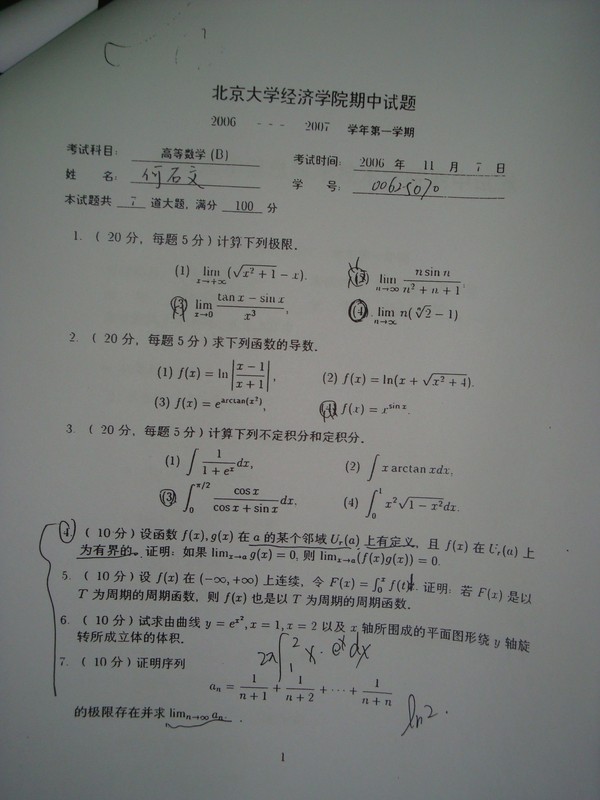 北京大学经济学院期中试题
2006 --- 2007 学年第一学期
考试科目: 高等数学 (B) 考试时间: 2006 年 11 月 7 日
姓 名: 何石文 学 号: 00625070
本试题共 7 道大题, 满分 100 分
1. ( 20 分, 每题 5 分 ) 计算下列极限.
(1) lim_{x→+∞} (√(x²+1) − x). (2) lim_{n→∞} (n sin n)/(n²+n+1);
(3) lim_{x→0} (tan x − sin x)/x³, (4) lim_{n→∞} n(ⁿ√2 − 1)
2. ( 20 分, 每题 5 分 ) 求下列函数的导数.
(1) f(x) = ln |(x−1)/(x+1)|, (2) f(x) = ln(x + √(x²+4)).
(3) f(x) = e^{arctan(x²)}, (4) f(x) = x^{sin x}.
3. ( 20 分, 每题 5 分 ) 计算下列不定积分和定积分.
(1) ∫ 1/(1+e^x) dx, (2) ∫ x arctan x dx,
(3) ∫_0^{π/2} cos x/(cos x + sin x) dx, (4) ∫_0^1 x²√(1−x²) dx.
4. ( 10 分 ) 设函数 f(x), g(x) 在 a 的某个邻域 U_r(a) 上有定义, 且 f(x) 在 U_r(a) 上
为有界的. 证明: 如果 lim_{x→a} g(x) = 0, 则 lim_{x→a}(f(x)g(x)) = 0.
5. ( 10 分 ) 设 f(x) 在 (−∞, +∞) 上连续, 令 F(x) = ∫_0^x f(t)dt. 证明: 若 F(x) 是以
T 为周期的周期函数, 则 f(x) 也是以 T 为周期的周期函数.
6. ( 10 分 ) 试求由曲线 y = e^{x²}, x = 1, x = 2 以及 x 轴所围成的平面图形绕 y 轴旋
转所成立体的体积.
2π∫_1^2 x · e^x dx
7. ( 10 分 ) 证明序列
a_n = 1/(n+1) + 1/(n+2) + ··· + 1/(n+n)
ln2.
的极限存在并求 lim_{n→∞} a_n.
1